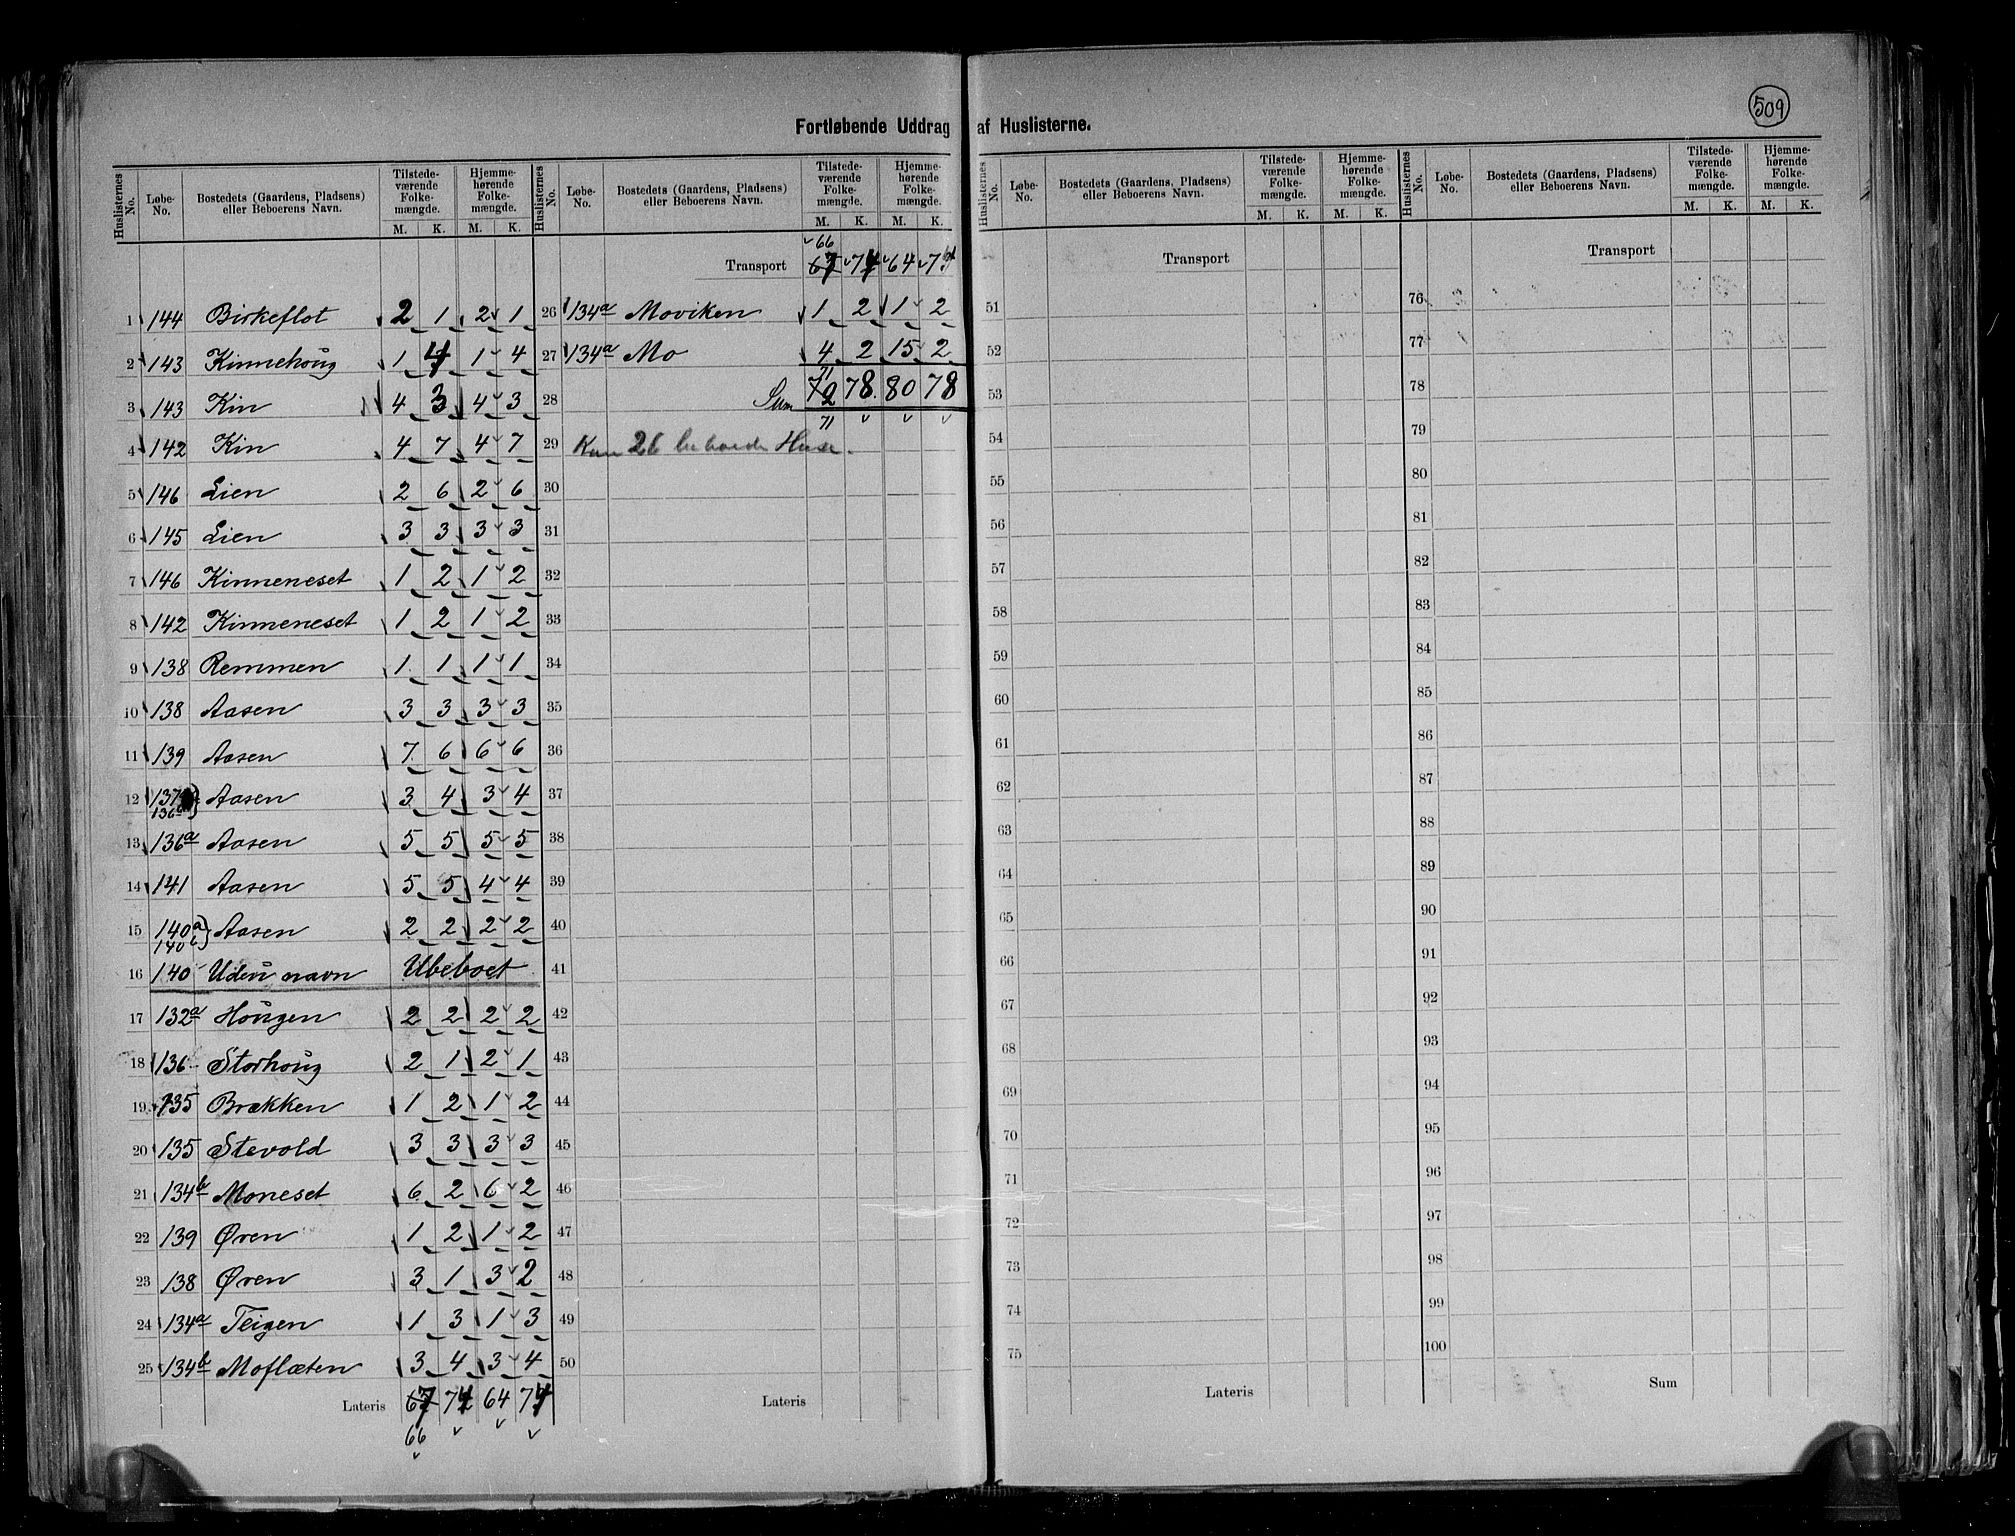 509
Fortløbende Uddrag af Huslisterne.
Huslisternes No. Løbe-No. Bostedets (Gaardens, Pladsens) eller Beboerens Navn. Tilstedeværende Folkemængde. M. K. Hjemmehørende Folkemængde. M. K.
1 144 Birkeflot 2 1 2 1
2 143 Kinnehoug 1 4 1 4
3 143 Kin 4 3 4 3
4 142 Kin 4 7 4 7
5 146 Lien 2 6 2 6
6 145 Lien 3 3 3 3
7 146 Kinneneset 1 2 1 2
8 142 Kinneneset 1 2 1 2
9 138 Remmen 1 1 1 1
10 138 Aasen 3 3 3 3
11 139 Aasen 7 6 6 6
12 137 136b Aasen 3 4 3 4
13 136a Aasen 5 5 5 5
14 141 Aasen 5 5 4 4
15 140a 140b Aasen 2 2 2 2
16 140 Uden navn Ubeboet
17 132a Hougen 2 2 2 2
18 136 Storhoug 2 1 2 1
19 135 Brækken 1 2 1 2
20 135 Stevold 3 3 3 3
21 134b Moneset 6 2 6 2
22 139 Øren 1 2 1 2
23 138 Øren 3 1 3 2
24 134a Teigen 1 3 1 3
25 134b Moflæten 3 4 3 4
Lateris 67 74 64 74
66
Huslisternes No. Løbe-No. Bostedets (Gaardens, Pladsens) eller Beboerens Navn. Tilstedeværende Folkemængde. M. K. Hjemmehørende Folkemængde. M. K.
66
Transport 67 74 64 74
26 134a Moviken 1 2 1 2
27 134a Mo 4 2 15 2
71
28 Sum 72 78 80 78
71
29 Kun 26 beboede Huse.
30
31
32
33
34
35
36
37
38
39
40
41
42
43
44
45
46
47
48
49
50
Lateris
Huslisternes No. Løbe-No. Bostedets (Gaardens, Pladsens) eller Beboerens Navn. Tilstedeværende Folkemængde. M. K. Hjemmehørende Folkemængde. M. K.
Transport
51
52
53
54
55
56
57
58
59
60
61
62
63
64
65
66
67
68
69
70
71
72
73
74
75
Lateris
Huslisternes No. Løbe-No. Bostedets (Gaardens, Pladsens) eller Beboerens Navn. Tilstedeværende Folkemængde. M. K. Hjemmehørende Folkemængde. M. K.
Transport
76
77
78
79
80
81
82
83
84
85
86
87
88
89
90
91
92
93
94
95
96
97
98
99
100
Sum